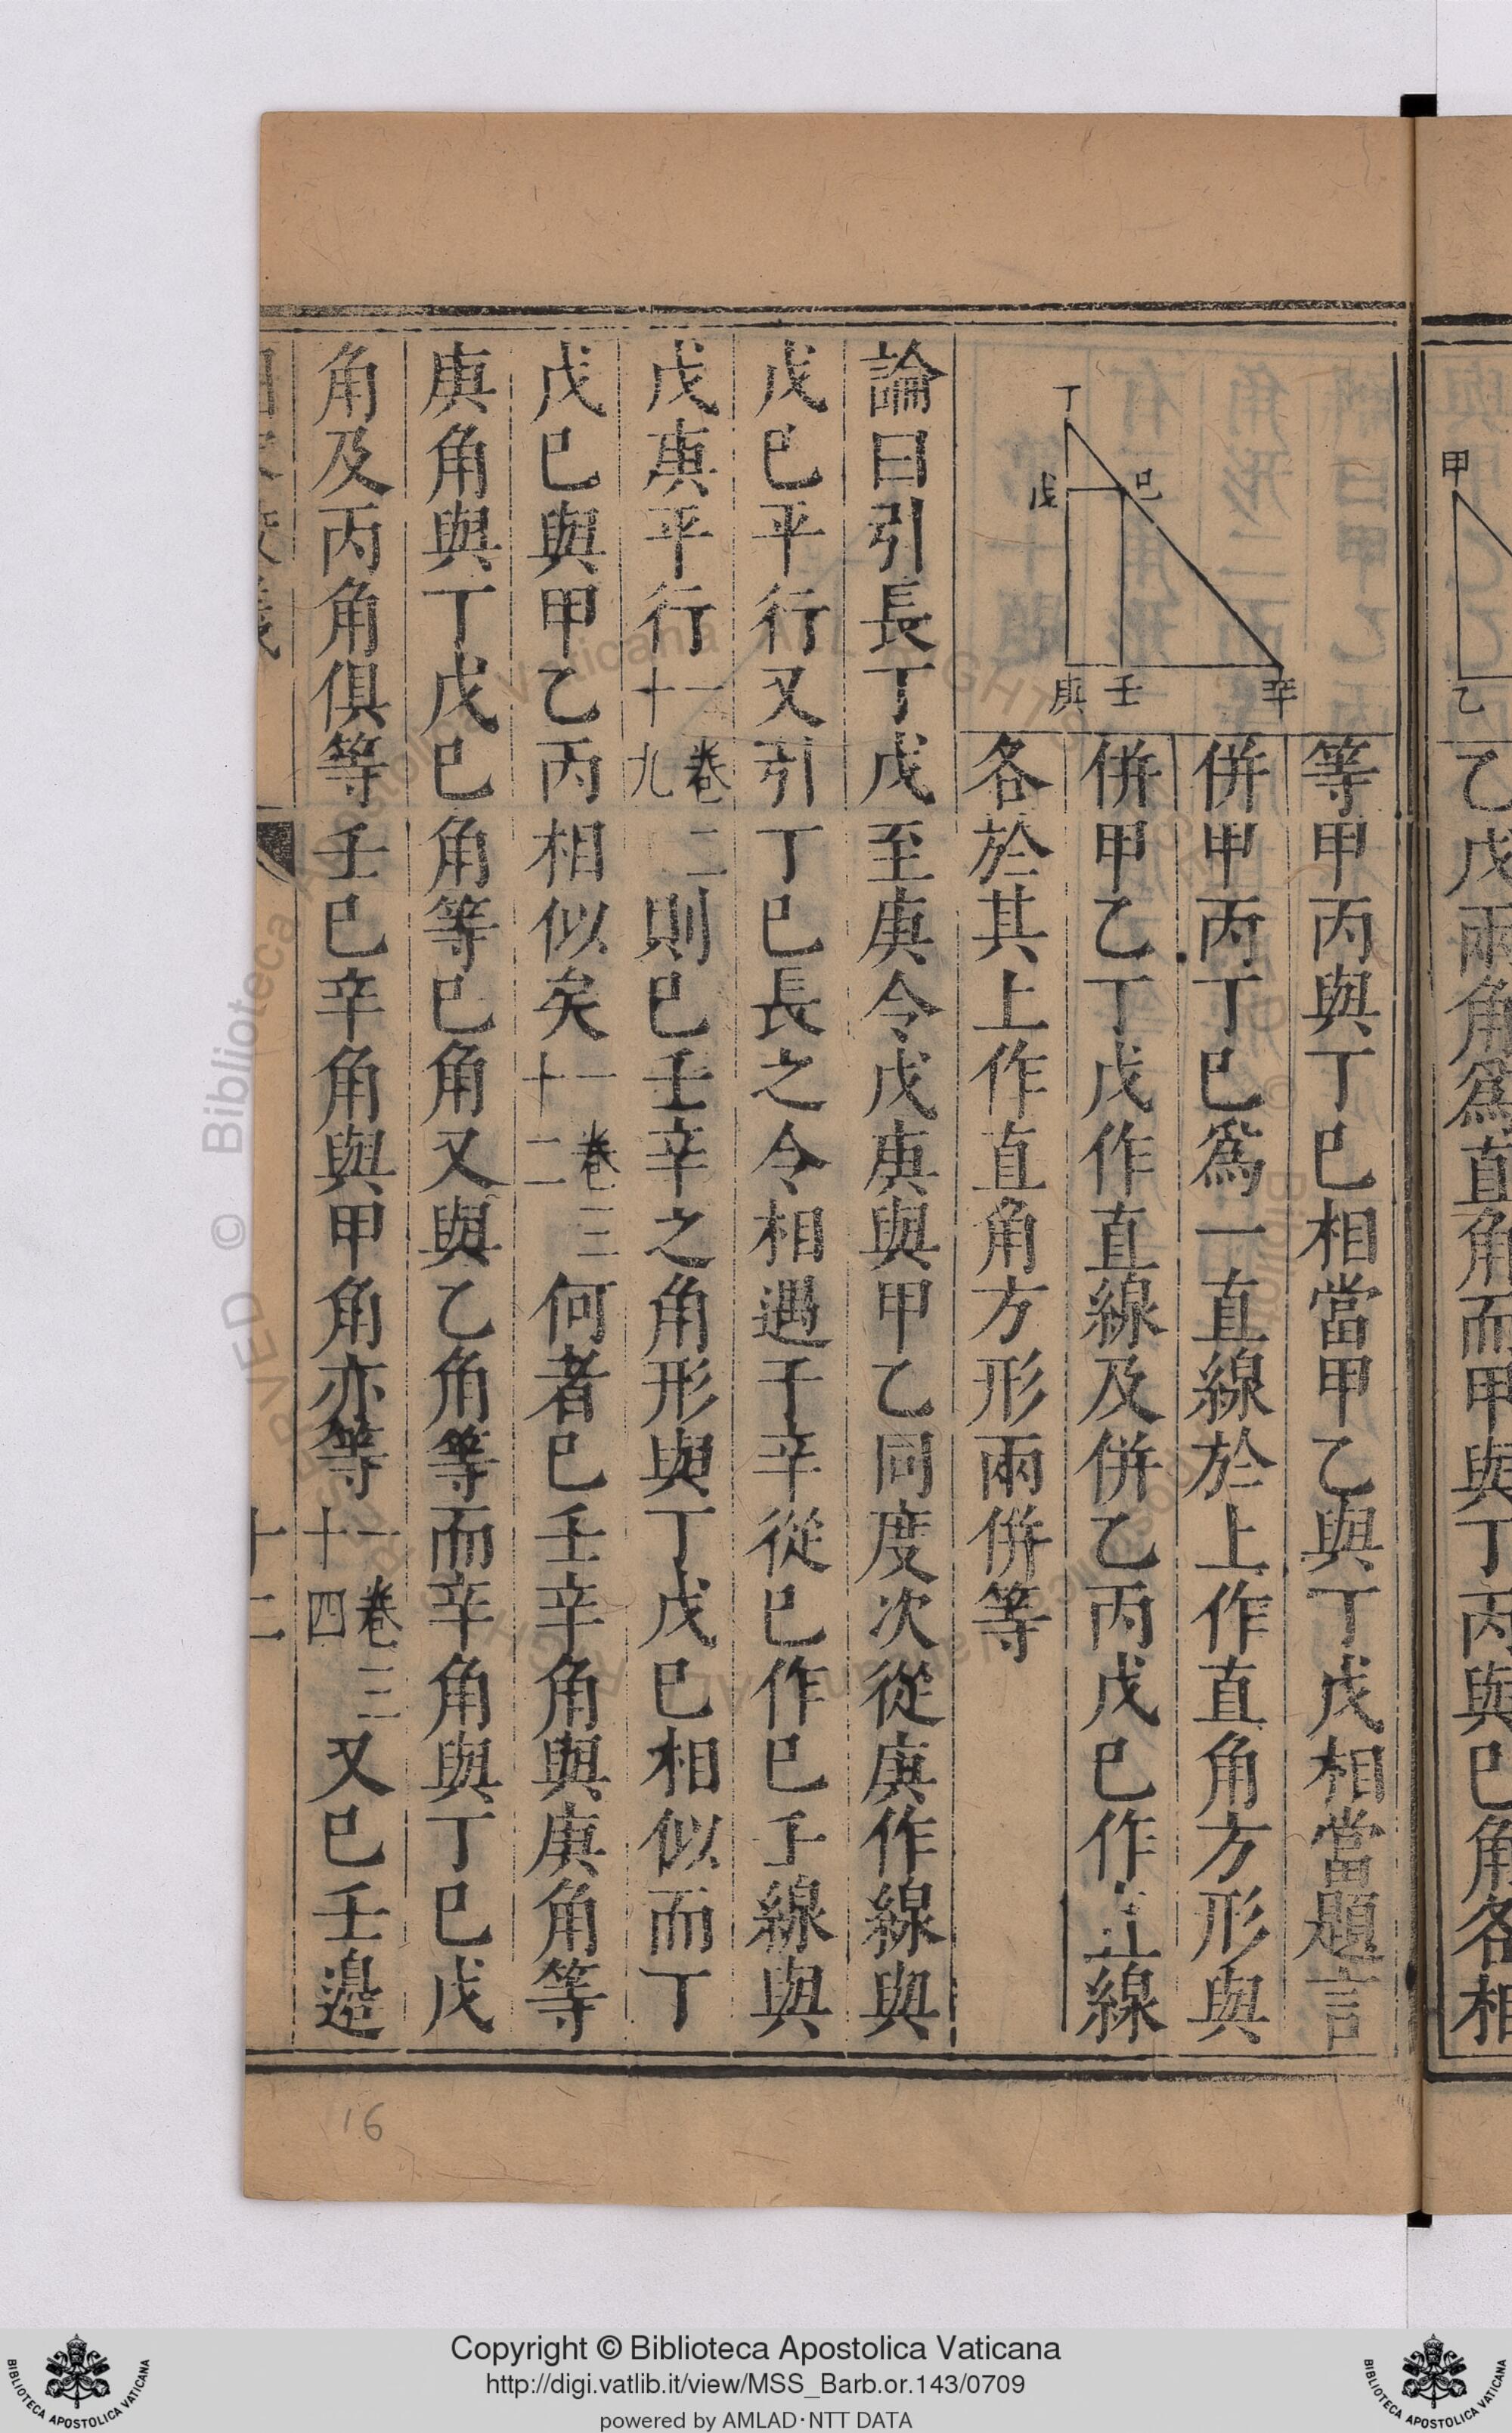 甲
乙
乙戊兩角爲直角而甲與丁丙與巳角各相
丁
戊
巳
庚
壬
辛
等甲丙與丁巳相當甲乙與丁戊相當題言
併甲丙丁巳爲一直線於上作直角方形與
併甲乙丁戊作直線及併乙丙戊巳作直線
各於其上作直角方形兩併等
論曰引長丁戊至庚令戊庚與甲乙同度次從庚作線與
戊巳平行又引丁巳長之令相遇于辛從巳作巳壬線與
戊庚平行一卷二十九則巳壬辛之角形與丁戊巳相似而丁
戊巳與甲乙丙相似矣一卷三十二何者巳壬辛角與庚角等
庚角與丁戊巳角等巳角又與乙角等而辛角與丁巳戊
角及丙角俱等壬巳辛角與甲角亦等一卷三十四又巳壬邊
十二
16
© Biblioteca Apostolica Vaticana
Copyright © Biblioteca Apostolica Vaticana
http://digi.vatlib.it/view/MSS_Barb.or.143/0709
powered by AMLAD·NTT DATA
BIBLIOTECA APOSTOLICA VATICANA
BIBLIOTECA APOSTOLICA VATICANA